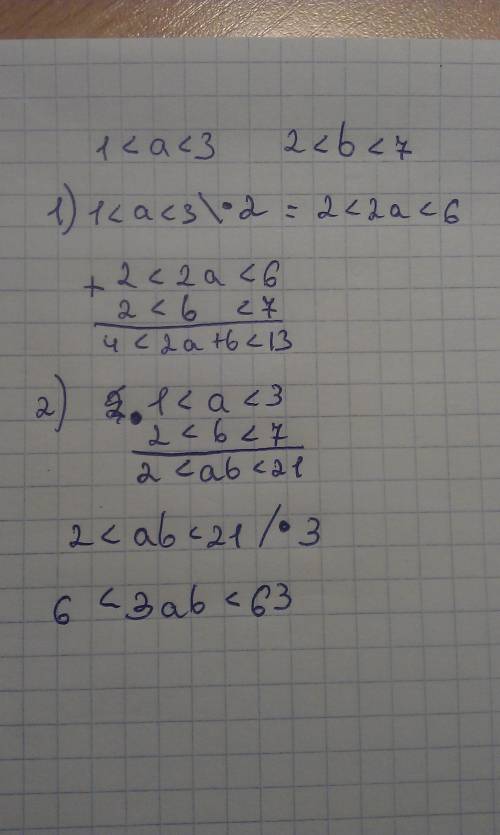 1 < a < 3 2 < b < 7
1) 1 < a < 3 \ • 2 = 2 < 2a < 6
+ 2 < 2a < 6
2 < b < 7
4 < 2a + b < 13
2) • 1 < a < 3
2 < b < 7
2 < ab < 21
2 < ab < 21 / • 3
6 < 3ab < 63